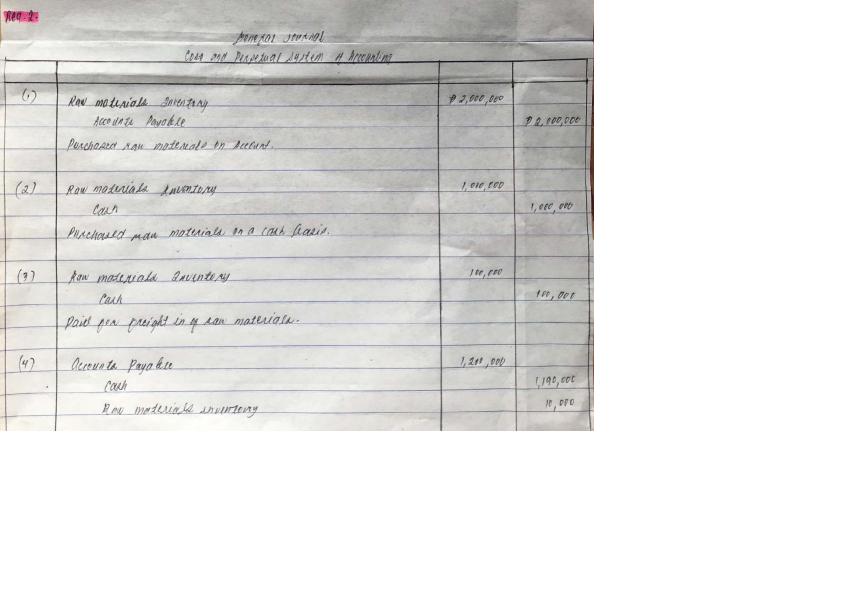 Req. 2.
General Journal
Cost and Perpetual System of Accounting
(1) Raw materials Inventory ₱ 2,000,000
Accounts Payable ₱ 2,000,000
Purchased raw materials on account.
(2) Raw materials Inventory 1,000,000
Cash 1,000,000
Purchased raw materials on a cash basis.
(3) Raw materials Inventory 100,000
Cash 100,000
Paid for freight in of raw materials.
(4) Accounts Payable 1,200,000
Cash 1,190,000
Raw materials inventory 10,000